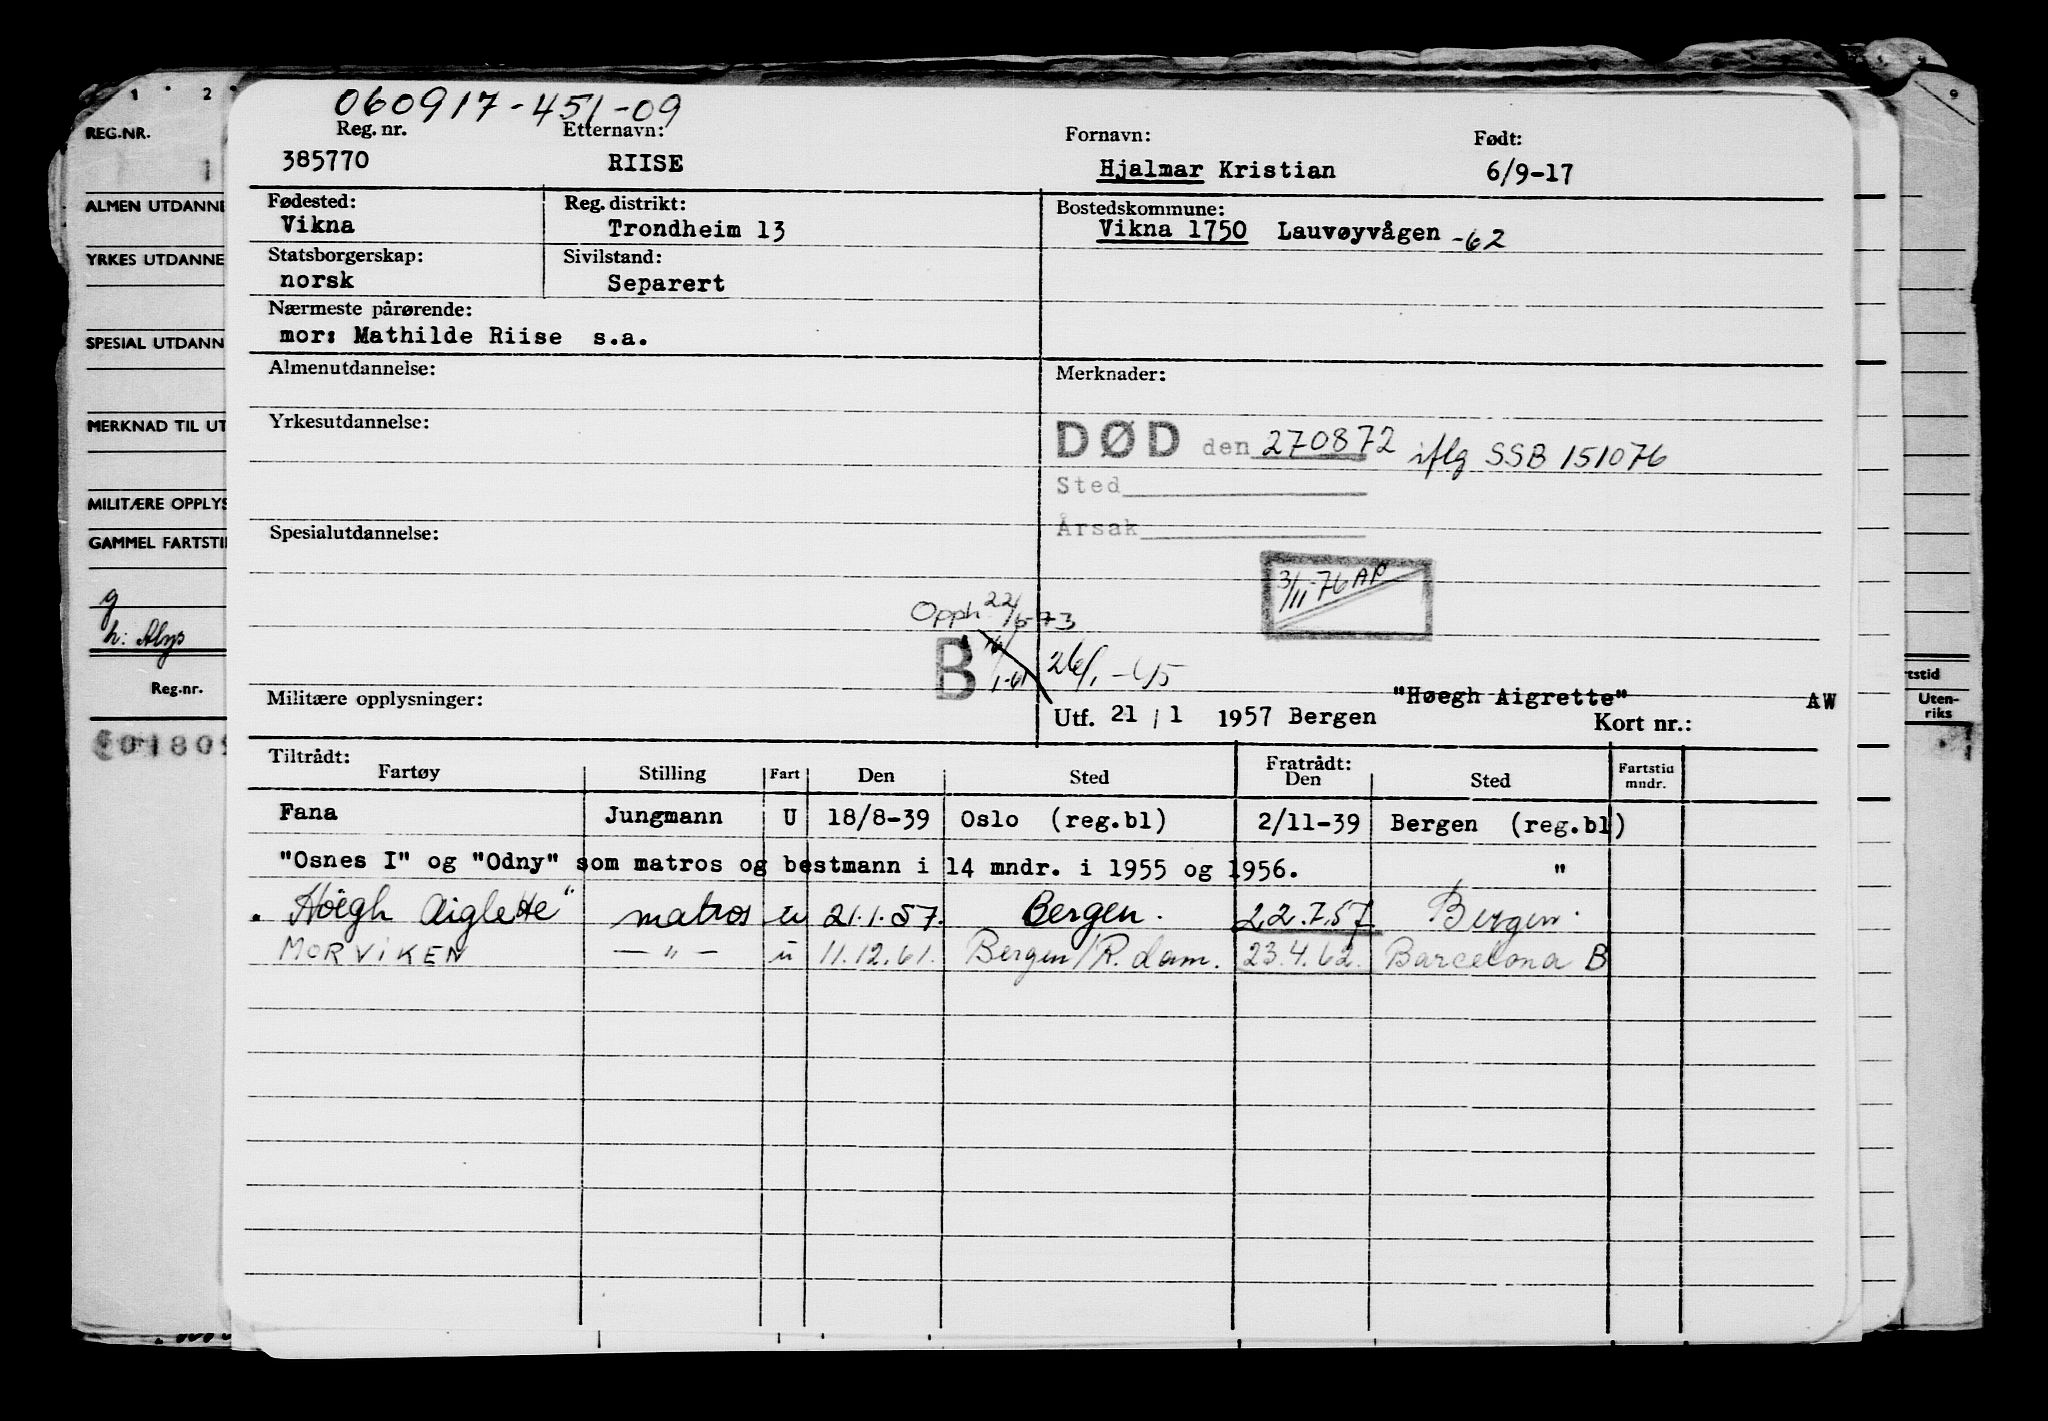 060917-451-09
Reg. nr. Etternavn: Fornavn: Født:
385770 RIISE Hjalmar Kristian 6/9-17
Fødested: Reg. distrikt: Bostedskommune:
Vikna Trondheim 13 Vikna 1750 Lauvøyvågen -62
Statsborgerskap: Sivilstand:
norsk Separert
Nærmeste pårørende:
mor: Mathilde Riise s.a.
Almenutdannelse: Merknader:
Yrkesutdannelse:
DØD den 270872 iflg SSB 151076
Sted
Årsak
Spesialutdannelse:
3/11-76 AP
Opph 22/6-73
B 1-61 26/1-65
Militære opplysninger:
"Høegh Aigrette" AW
Utf. 21 / 1 1957 Bergen Kort nr.:
Tiltrådt: Fratrådt:
Fartøy Stilling Fart Den Sted Den Sted Fartstid mndr.
Fana Jungmann U 18/8-39 Oslo (reg.bl) 2/11-39 Bergen (reg.bl)
"Osnes I" og "Odny" som matros og bestmann i 14 mndr. i 1955 og 1956. "
Höegh Aiglette" matros u 21.1.57. Bergen. 22.7.57 Bergen.
MORVIKEN — " — u 11.12.61. Bergen/R.dam. 23.4.62. Barcelona B
1 2
REG.NR.
ALMEN UTDANNE
YRKES UTDANNE
SPESIAL UTDANN
MERKNAD TIL UT
MILITÆRE OPPLYS
GAMMEL FARTSTI
g
h: Alys
Reg.nr.
9
rtstid
Uten-
riks